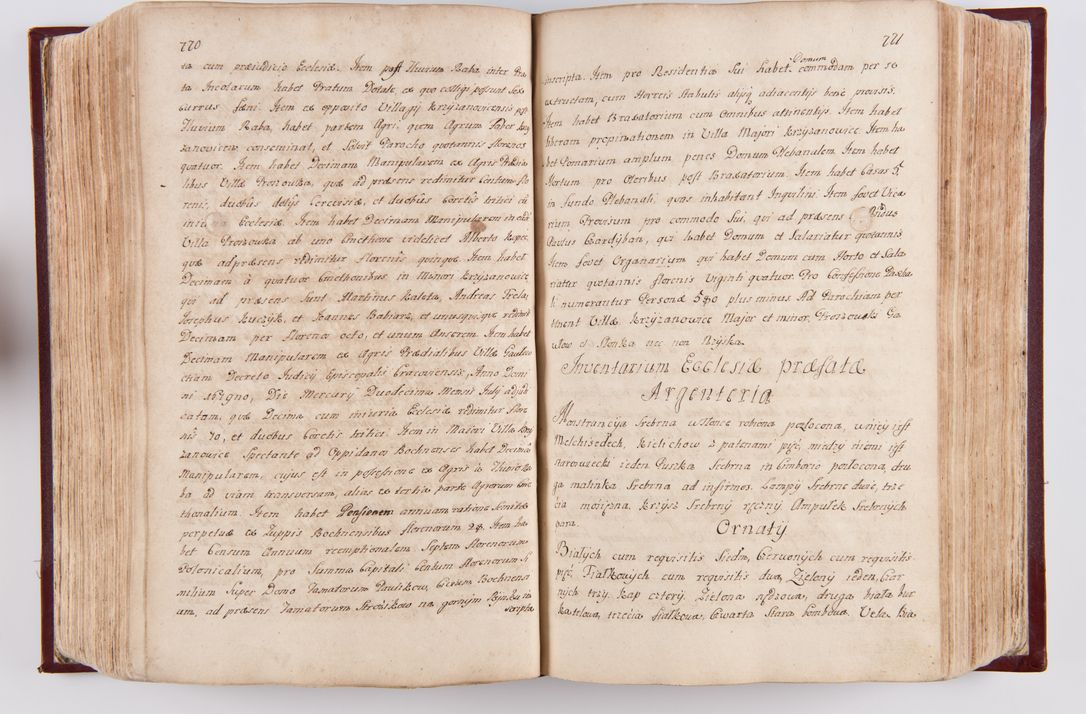 770
ta cum præiudicio Ecclesiæ. Item post fluvium Raba inter Pra-
ta Incolarum habet Pratum Dotale, ex quo colligi possunt sex
currus fæni. Item ex opposito Villagÿ Krzÿzanovicensis post
fluvium Raba, habet partem Agri, quem Agrum Faber Krzÿ
zanovicens: conseminat, et Solvit Parocho quotannis florenos
quatuor. Item habet Decimam Manipularem ex Agris Prædia-
libus Villæ Proszowka, quæ ad præsens redimitur Centum flo
renis, duobus dolÿs Cerevisiæ, et duobus Coretis tritici cũ
Ecclesiæ. Item habet Decimam Manipularem in eadẽ
Villa Proszowka ab uno Cmethone videlicet Alberto Kopec,
quæ ad præsens redimitur florenis quinque. Item habet
Decimam à quatuor Cmethonibus in Minori Krzÿzanowice
qui ad præsens sunt Martinus Kaleta, Andreas Trela,
Josephus Kuczÿk, et Joannes Babiarz, et unusquisque redimit
Decimam per florenos octo, et unum Anserem. Item habet
Decimam Manipularem ex Agris Prædialibus Villæ Gawlow
etiam Decreto Judicÿ Episcopalis Cracoviensis, Anno Domi
ni Die Mercurÿ Duodecima Mensis Julÿ adjudi
catam, quæ Decima cum iniuria Ecclesiæ redimitur flore
nis 70, et duobus Coretis tritici. Item in Maiori Villa Krzÿ
zanowice Spectante ad Oppidanos Bochnenses habet Decimã
Manipularem, cujus est in possessione ex Agris à fluvio Ra
ba ad viam transversam, alias ex tertia parte Agrorum Cme
thonalium. Item habet Pensionem annuam ratione
perpetuæ ex Zuppis Bochnensibus florenorum 28. Item ha
bet Censum Annuum reemptionalem Septem florenorum
Polonicalium, pro Summa Capitali Centum florenorum Si
milium Super Domo Famatorum Pauſikow, Civium Bochnensi
um, ad præsens Famatorum Stroiskow na gornÿm Rÿnku in
scripta
771
inscripta. Item pro Residentia Sui habet Domum commodam per se
extructam, cum Horreis Stabulis alÿsq adiacentÿs bene provisis.
Item habet Braxatorium cum Omnibus attinentÿs. Item habet
liberam propinationem in Villa Majori Krzÿzanowice. Item ha
bet Pomarium amplum penes Domum Plebanalem. Item habet
Hortum pro Oleribus post Braxatorium. Item habet Casas 5
in fundo Plebanali, quas inhabitant Inquilini. Item fovet Vica
rium Provisum pro commodo Sui, qui ad præsens
Paulus Gardÿban, qui habet Domum et Salariatur quotannis
Item fovet Organarium qui habet Domum cum Horto et Sala
riatur quotannis florenis Viginti quatuor. Pro Confessione Pascha
li numerantur Personæ 580 plus minus. Ad Parochiam per
tinent Villæ Krzÿzanowice Major et minor, Proszowki Ga
wlow et Słomka nec non Rzÿska.
Inventarium Ecclesiæ præfatæ
Argenteria
Monstrancÿia Srebrna w Słonce robiona pozłocona, w niey iest
Melchisedech, Kielichow z patenami pięć, miedzÿ niemi iest
staroswiecki ieden Puszka Srebrna in Cimborio pozłocona, dru
ga malinka Srebrna ad infirmos. Lampÿ Srebrne dwie, trze
cia mosiężna. Krzÿż Srebrnÿ ręcznÿ Ampułek Srebrnÿch
para.
Ornatÿ
Białÿch cum requisitis Siedm, Czerwonÿch cum requisitis
pięć, Fiałkowÿch cum requisitis dwa, Zielonÿ ieden, Czar
nÿch trzÿ. Kap czterÿ, Zielona nędzowa, druga biała bur
katelowa, trzecia fiałkowa, Czwarta Stara bombowa. Vela Bia